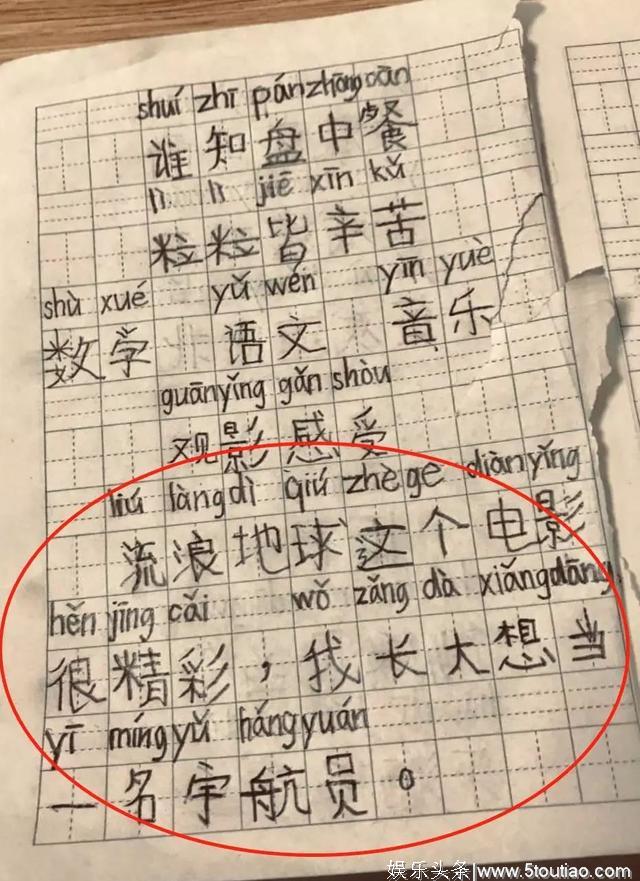 shuí zhī pán zhōng cān
谁知盘中餐
lì lì jiē xīn kǔ
粒粒皆辛苦
shù xué yǔ wén yīn yuè
数学 语文 音乐
guānyǐng gǎn shòu
观影感受
liú làng dì qiú zhè ge diànyǐng
流浪地球这个电影
hěn jīng cǎi wǒ zǎng dà xiǎng dāng
很精彩，我长大想当
yī míng yǔ háng yuán
一名宇航员。
娱乐头条|www.5toutiao.com